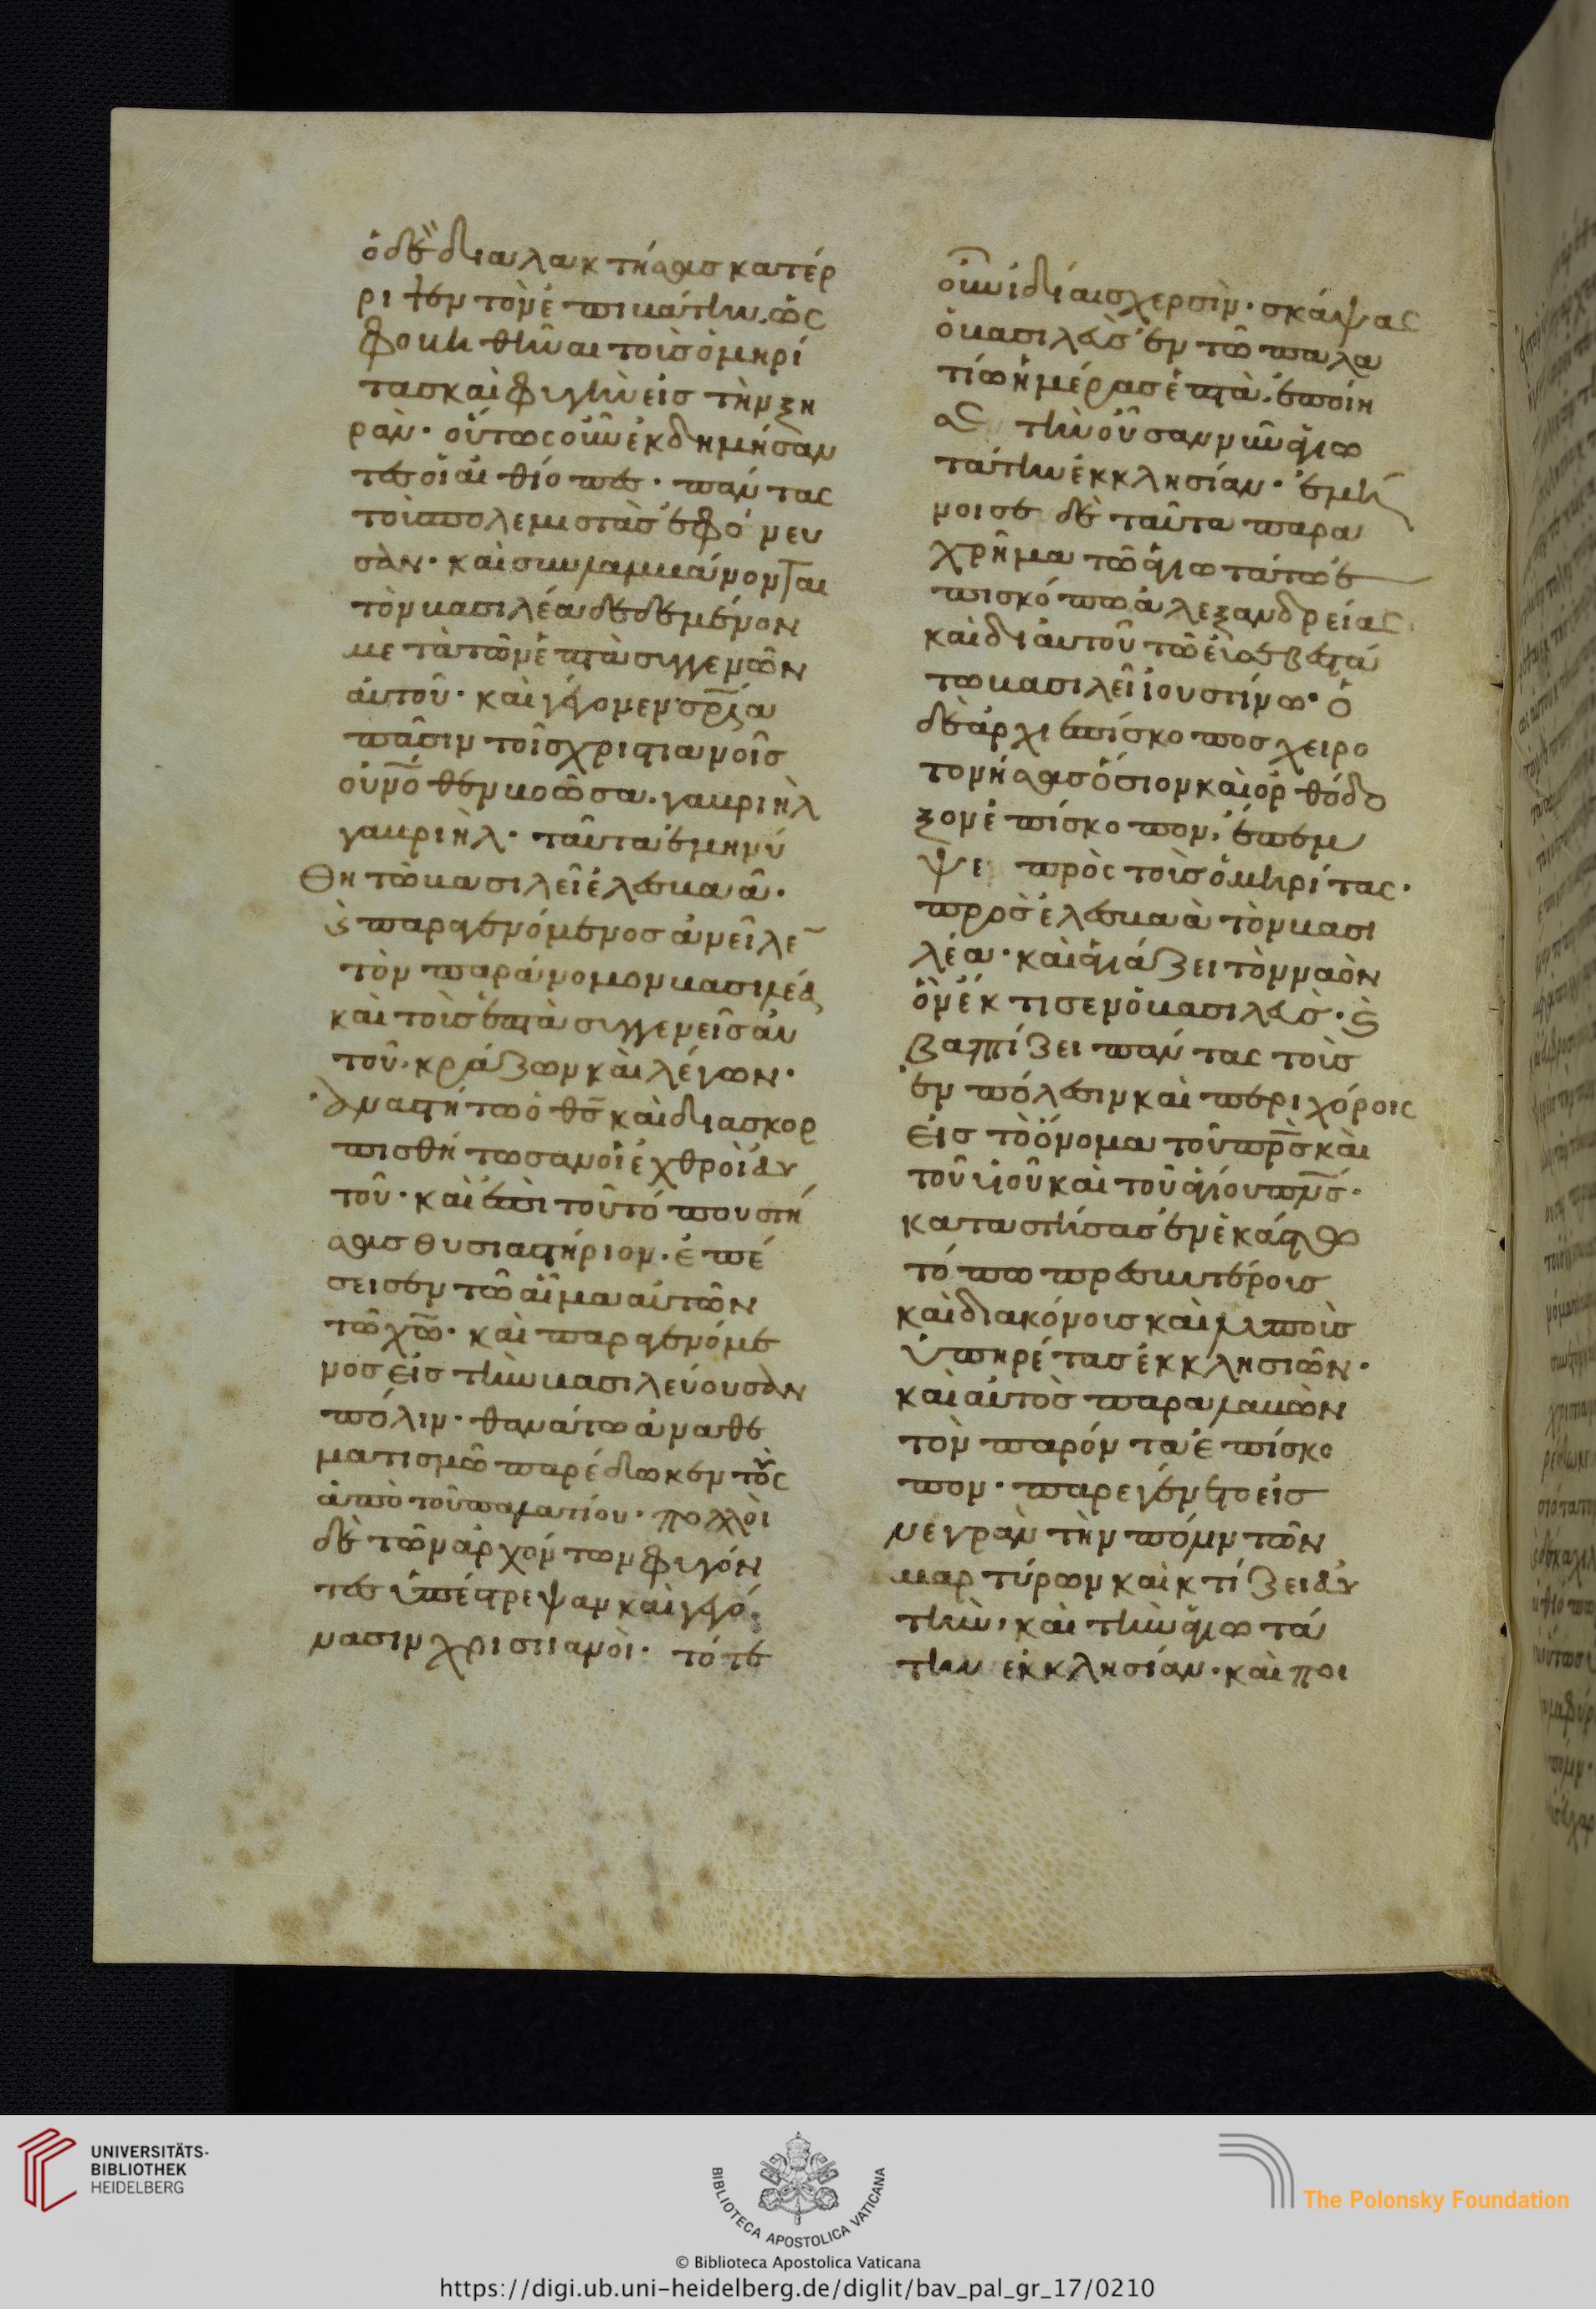 ὁδὲ διαλακτήσας κατέρ
ριψεν τὸν ἐπιβάτην. ὡς
φοβηθῆναι τοὺς ὁμηρί
τας καὶ φυγὴν εἰς τὴν ξη
ρὰν· οὕτως οὖν ἐκδημήσαν
τες οἱ αἰθίοπες· πάντας
τοὺς πολεμιστὰς ἐφόνευ
σαν· καὶ συλλαμβάνονται
τὸν βασιλέα δεδεμένον
μετὰ τῶν ἑπτὰ συγγενῶν
αὐτοῦ· καὶ γέγονεν σρία
πᾶσιν τοῖς χριστιανοῖς
οὐνόθεν βοῶσα. γαβριὴλ
γαβριὴλ· ταῦτα ἐμηνύ
θη τῶ βασιλεῖ ἐλεσβαᾶ·
καὶ παραγενόμενος ἀνεῖλε
τὸν παράνομον βασιλέα
καὶ τοὺς ἑπτὰ συγγενεῖς αὐ
τοῦ, κράζων καὶ λέγων·
ἀναστήτω ὁ θς καὶ διασκορ
πισθήτωσαν οἱ ἐχθροὶ αὐ
τοῦ· καὶ ἐπὶ τοῦ τόπου στή
σας θυσιαστήριον. ἐπέ
σεισεν τῶ αἷμα αὐτῶν
τῶ χῶ· καὶ παραγενόμε
νος εἰς τὴν βασιλεύουσαν
πόλιν· θανάτω ἀναθε
ματισμῶ παρέδωκεν τοὺς
ἀπὸ τοῦ παλατίου· πολλοὶ
δὲ τῶν ἀρχόντων φυγόν
τες ὑπέστρεψαν καὶ γεγό
νασιν χριστιανοὶ· τότε
οὖν ἰδίαις χερσὶν· σκάψας
ὁ βασιλεὺς ἐν τῶ παλα
τίω ἡμέρας ἑπτὰ. ἐποίη
σε τὴν οὖσαν νῦν ἁγιω
τάτην ἐκκλησίαν· ἐμή
νοισε δὲ ταῦτα παρα
χρῆμα τῶ ἁγιωτάτω ἐ
πισκόπω ἀλεξανδρείας.
καὶ δι αὐτοῦ τῶ εὐσεβεστά
τω βασιλεῖ ἰουστίνω· ὁ
δὲ ἀρχιεπίσκοπος χειρο
τονήσας ὅσιον καὶ ὀρθόδο
ξον ἐπίσκοπον, ἔπεμ
ψε πρὸς τοὺς ὁμηρίτας·
πρὸς ἐλεσβαὰ τὸν βασι
λέα· καὶ ἁγιάζει τὸν ναὸν
ὃν ἔκτισεν ὁ βασιλεὺς· καὶ
βαπτίζει πάντας τοὺς
ἐν πόλεσιν καὶ περιχόροις
εἰς τὸ ὄνομα τοῦ πρς καὶ
τοῦ υἱοῦ καὶ τοῦ ἁγίου πνς·
καταστήσας ἐν ἑκάστω
τόπω πρεσβυτέροις
καὶ διακόνοις καὶ λιποὺς
ὑπηρέτας ἐκκλησιῶν·
καὶ αὐτὸς παραλαβὼν
τὸν παρόντα ἐπίσκο
πον· παρεγένετο εἰς
νεγρὰν τὴν πόλιν τῶν
μαρτύρων καὶ κτίζει αὐ
τὴν, καὶ τὴν ἁγιωτά
την ἐκκλησίαν· καὶ ποι
UNIVERSITÄTS-
BIBLIOTHEK
HEIDELBERG
BIBLIOTECA APOSTOLICA VATICANA
The Polonsky Foundation
© Biblioteca Apostolica Vaticana
https://digi.ub.uni-heidelberg.de/diglit/bav_pal_gr_17/0210